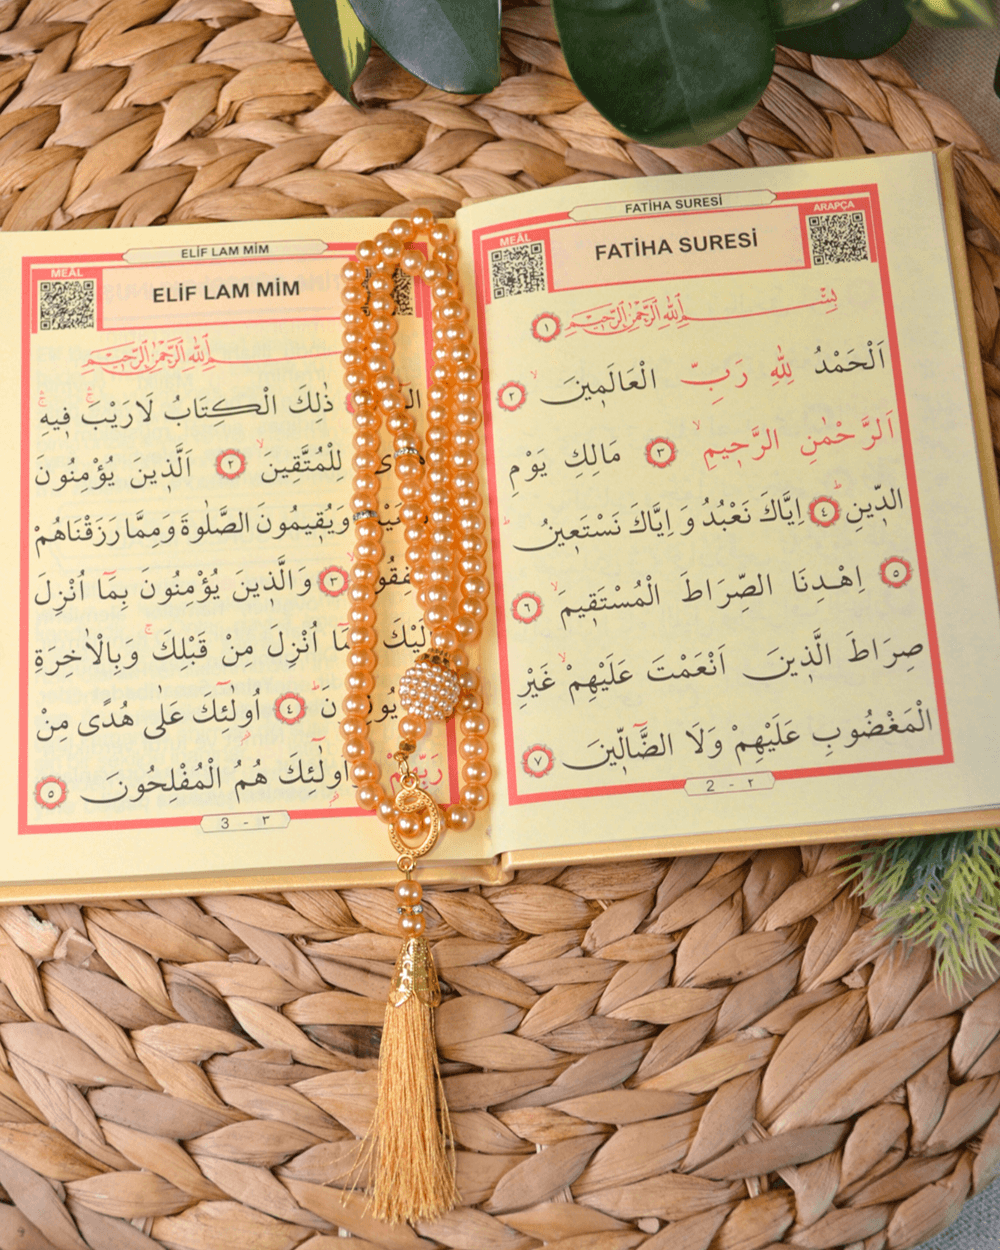 FATİHA SURESİ
MEÂL
ARAPÇA
FATİHA SURESİ
بِسْمِ اللهِ الرَّحْمٰنِ الرَّحِيمِ ١
اَلْحَمْدُ لِلّٰهِ رَبِّ الْعَالَمِينَ ٢
اَلرَّحْمٰنِ الرَّحِيمِ ٣ مَالِكِ يَوْمِ
الدِّينِ ٤ اِيَّاكَ نَعْبُدُ وَ اِيَّاكَ نَسْتَعِينُ
٥ اِهْدِنَا الصِّرَاطَ الْمُسْتَقِيمَ ٦
صِرَاطَ الَّذِينَ اَنْعَمْتَ عَلَيْهِمْ غَيْرِ
الْمَغْضُوبِ عَلَيْهِمْ وَلَا الضَّالِّينَ ٧
2 - ٢
ELİF LAM MİM
MEÂL
ELİF LAM MİM
اللهِ الرَّحْمٰنِ الرَّحِيمِ
ذٰلِكَ الْكِتَابُ لَا رَيْبَ فِيهِ
لِلْمُتَّقِينَ ٢ اَلَّذِينَ يُؤْمِنُونَ
وَيُقِيمُونَ الصَّلٰوةَ وَمِمَّا رَزَقْنَاهُمْ
٣ وَالَّذِينَ يُؤْمِنُونَ بِمَٓا اُنْزِلَ
اُنْزِلَ مِنْ قَبْلِكَ وَبِالْاٰخِرَةِ
٤ اُولٰٓئِكَ عَلٰى هُدًى مِنْ
رَبِّهِمْ اُولٰٓئِكَ هُمُ الْمُفْلِحُونَ ٥
3 - ٣